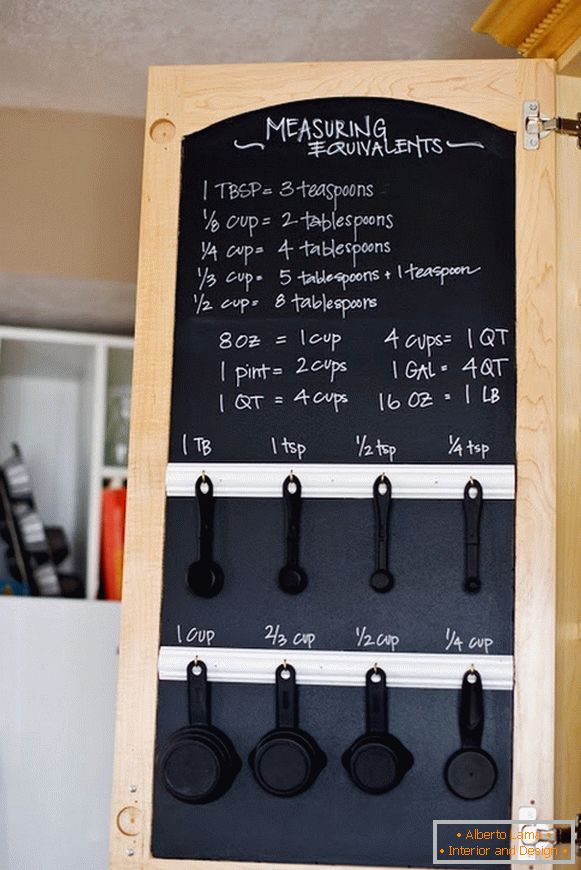 MEASURING
EQUIVALENTS
1 TBSP = 3 teaspoons
1/8 cup = 2 tablespoons
1/4 cup = 4 tablespoons
1/3 cup = 5 tablespoons + 1 teaspoon
1/2 cup = 8 tablespoons
8 oz = 1 cup
1 pint = 2 cups
1 QT = 4 cups
4 cups = 1 QT
1 GAL = 4 QT
16 oz = 1 LB
1 TB 1 tsp 1/2 tsp 1/4 tsp
1 cup 2/3 cup 1/2 cup 1/4 cup
• Alberto Lama •
• Interior and Design •